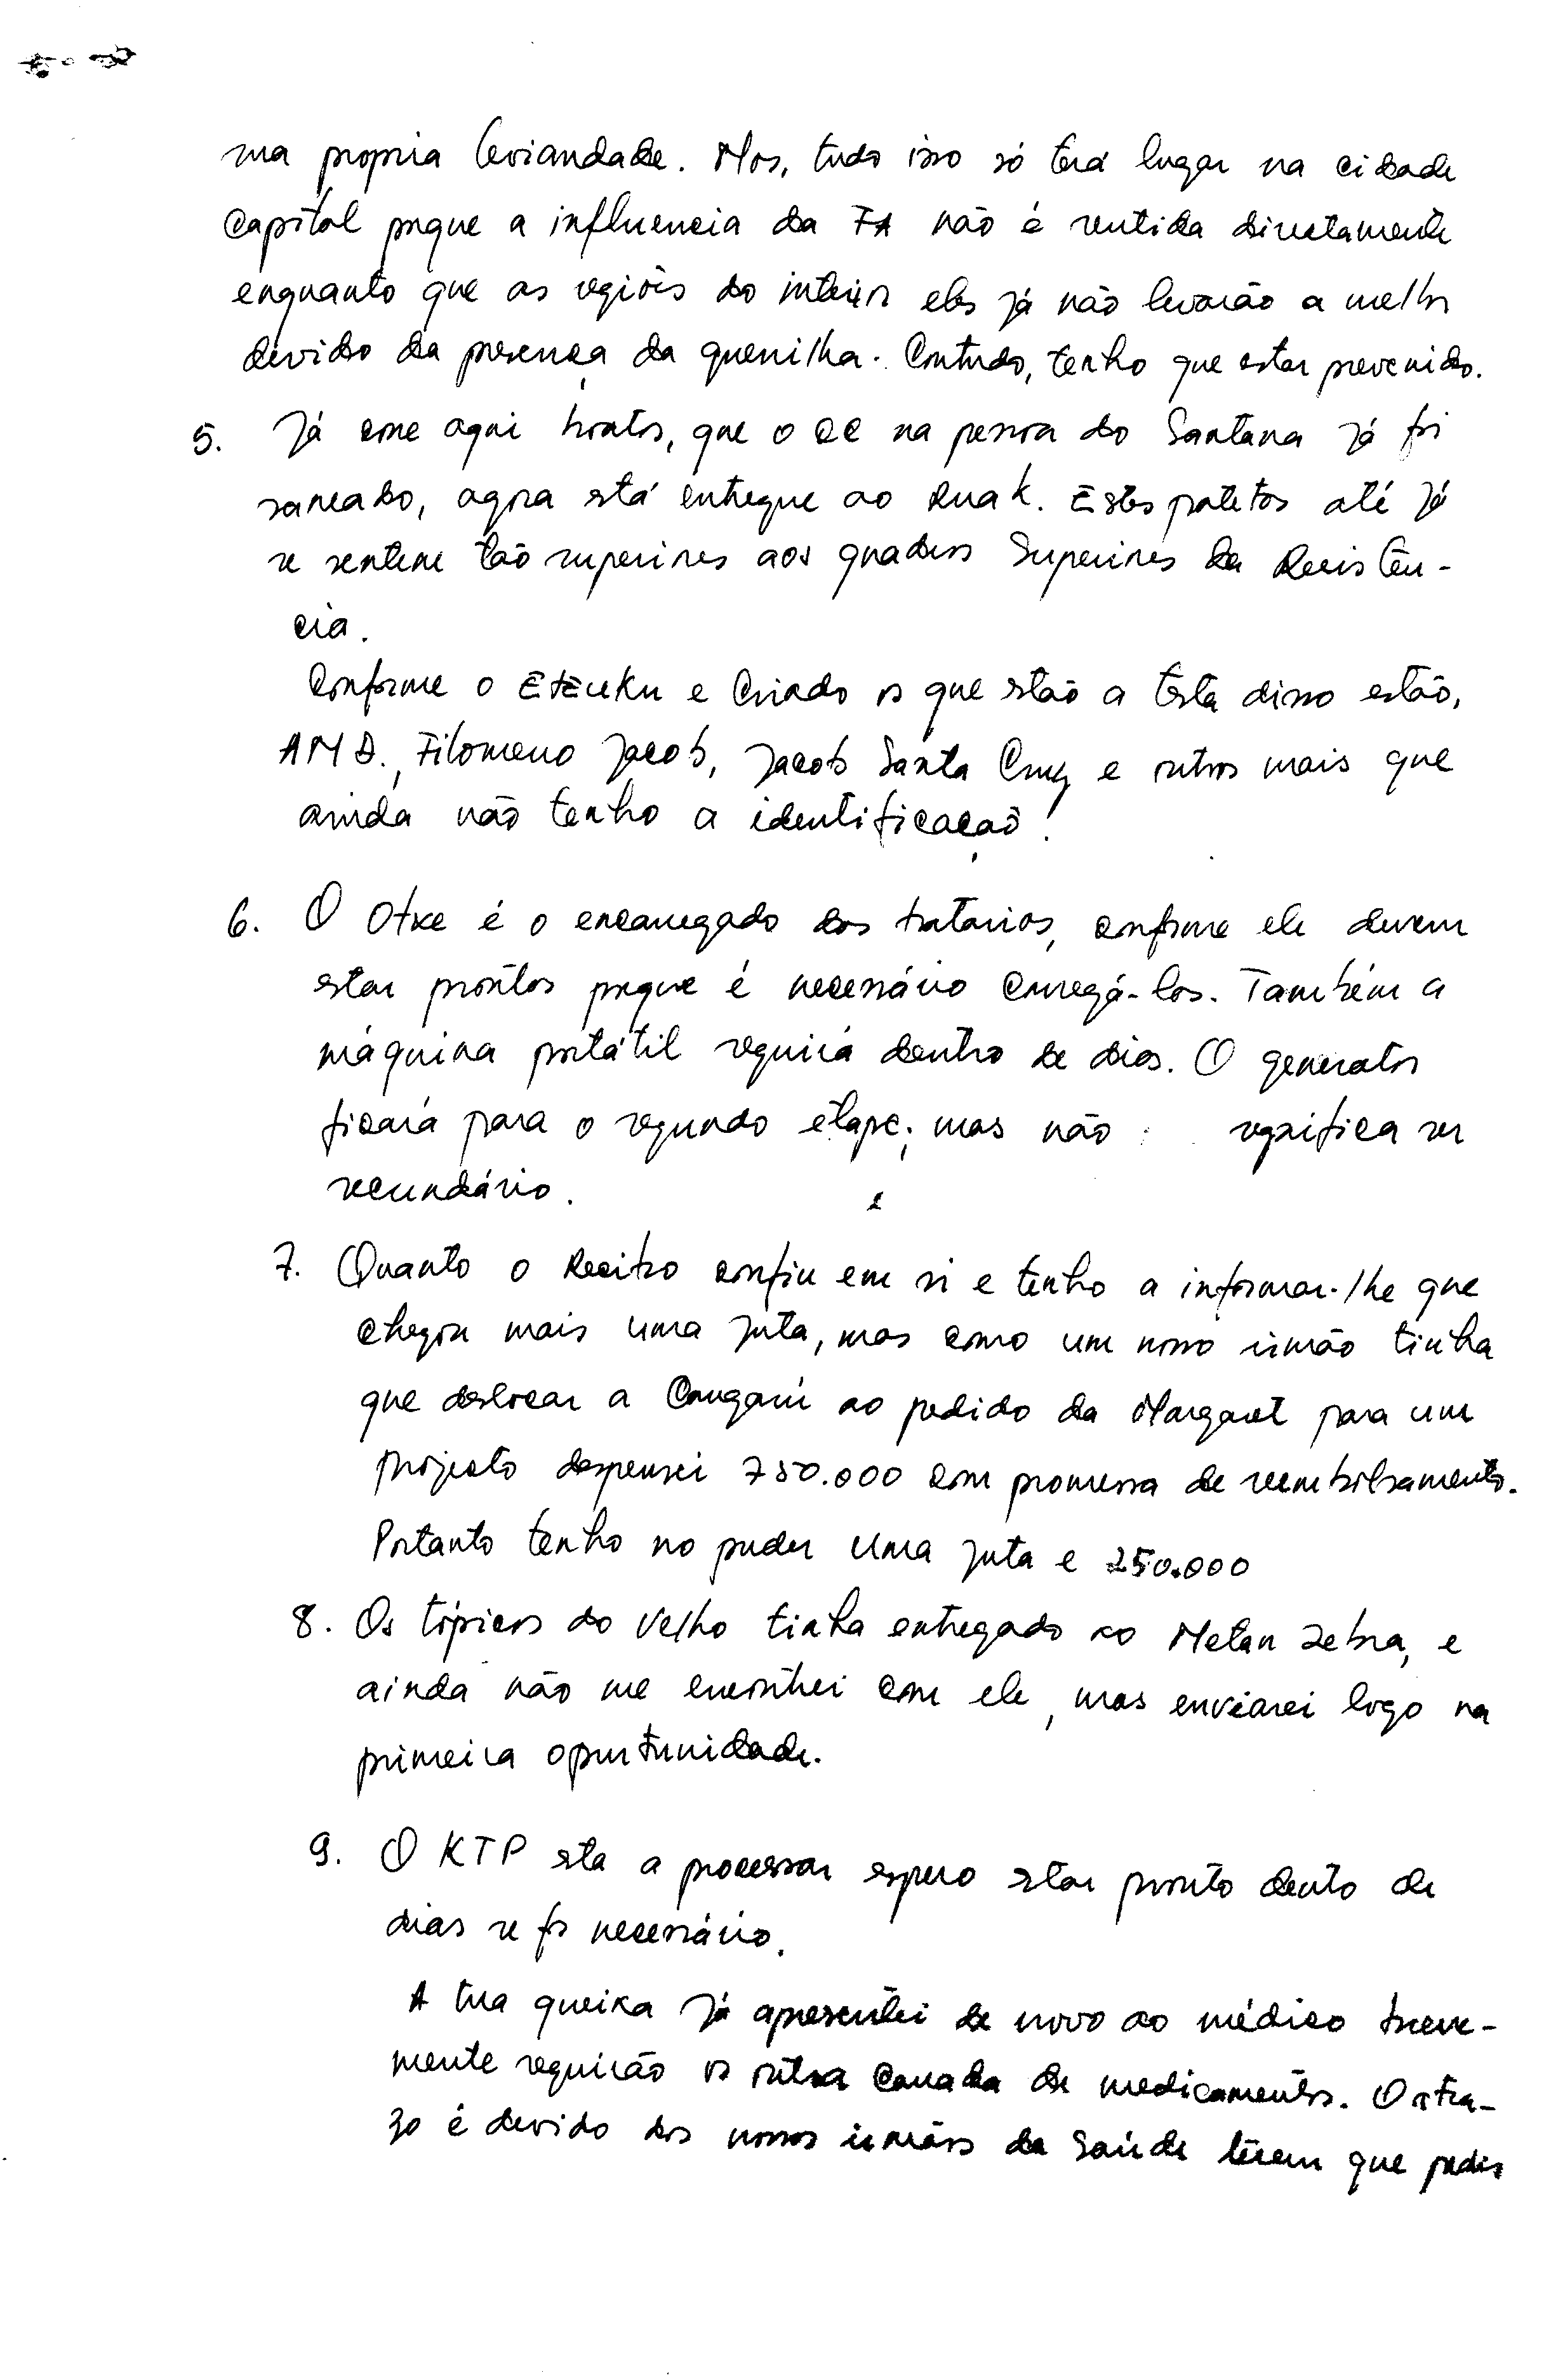 sua propria leviandade. Mas, tudo isso só terá lugar na cidade
capital porque a influencia da FA não é sentida directamente
enquanto que as regiões do interior eles já não levarão a melhor
devido da presença da guerrilha. Contudo, tenho que estar prevenido.
5. Já corre aqui boatos, que o CC na pessoa do Santana já foi
saneado, agora está entregue ao Ruak. Estes patetas até já
se sentem tão superiores aos quadros Superiores da Resistên-
cia.
Conforme o Eteuku e Criado os que estão a testa disso estão,
AMD., Filomeno Jacob, Jacob Santa Cruz e outros mais que
ainda não tenho a identificação!
6. O Otxe é o encarregado das batarias, conforme ele devem
estar prontos porque é necessário carregá-los. Também a
máquina portátil seguirá dentro de dias. O gerador
ficará para o segundo etape; mas não significa ser
secundário.
7. Quanto o Recibo confio em si e tenho a informar-lhe que
chegou mais uma juta, mas como um nosso irmão tinha
que deslocar a ao pedido da Margaret para um
projecto despensei 750.000 com promessa de reembolsamento.
Portanto tenho no puder uma juta e 250.000
8. Os tópicos do Velho tinha entregado ao Metan Zebra, e
ainda não me encontrei com ele, mas enviarei logo na
primeira oportunidade.
9. O KTP sta a processar espero star pronto dento de
dias se for necessário.
A tua queixa já apresentei de novo ao médico breve-
mente seguirão os outra camada de medicamentos. O atra-
zo é devido dos nossos irmãos da Saúde têrem que pedir